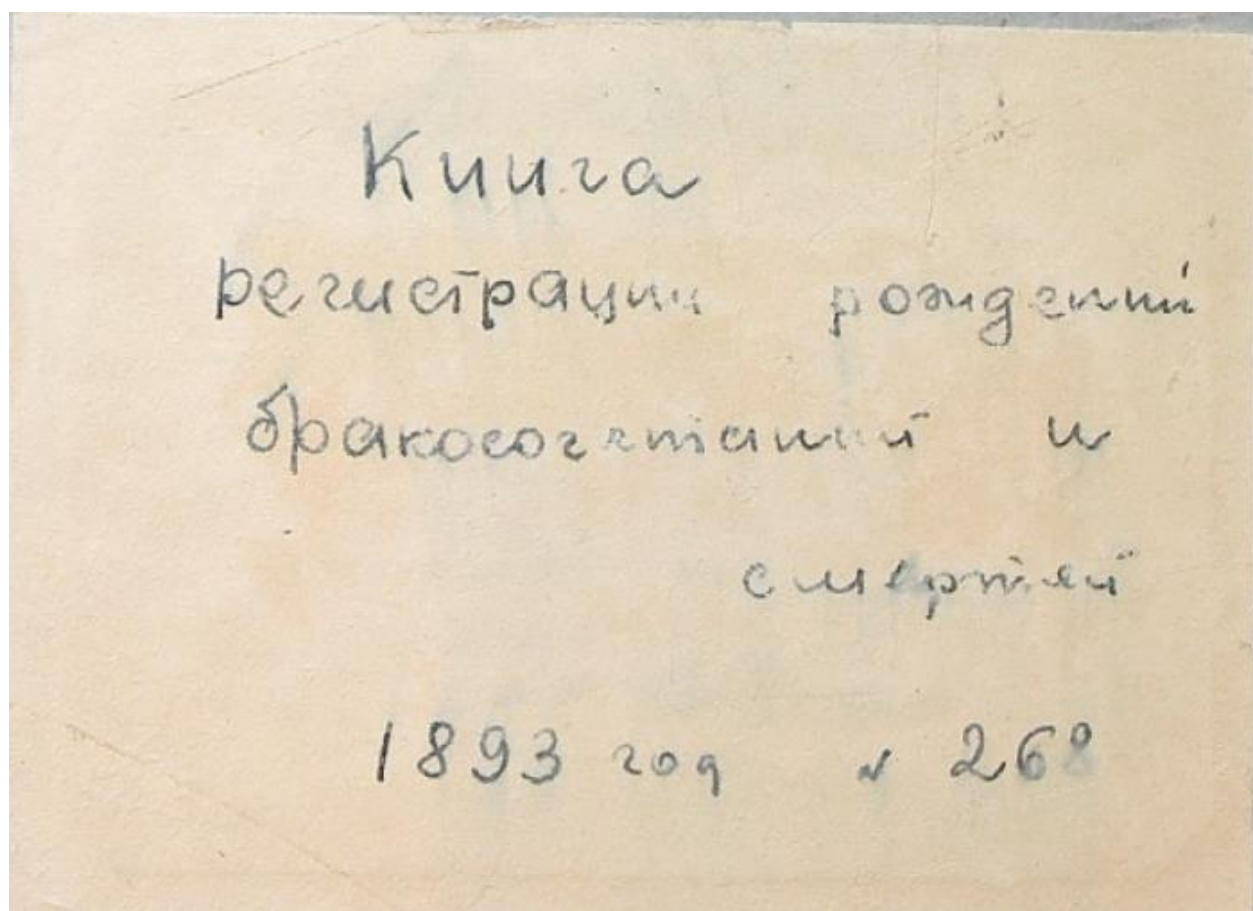 Книга
регистрации рождений
бракосочетаний и
смертей
1893 год № 268